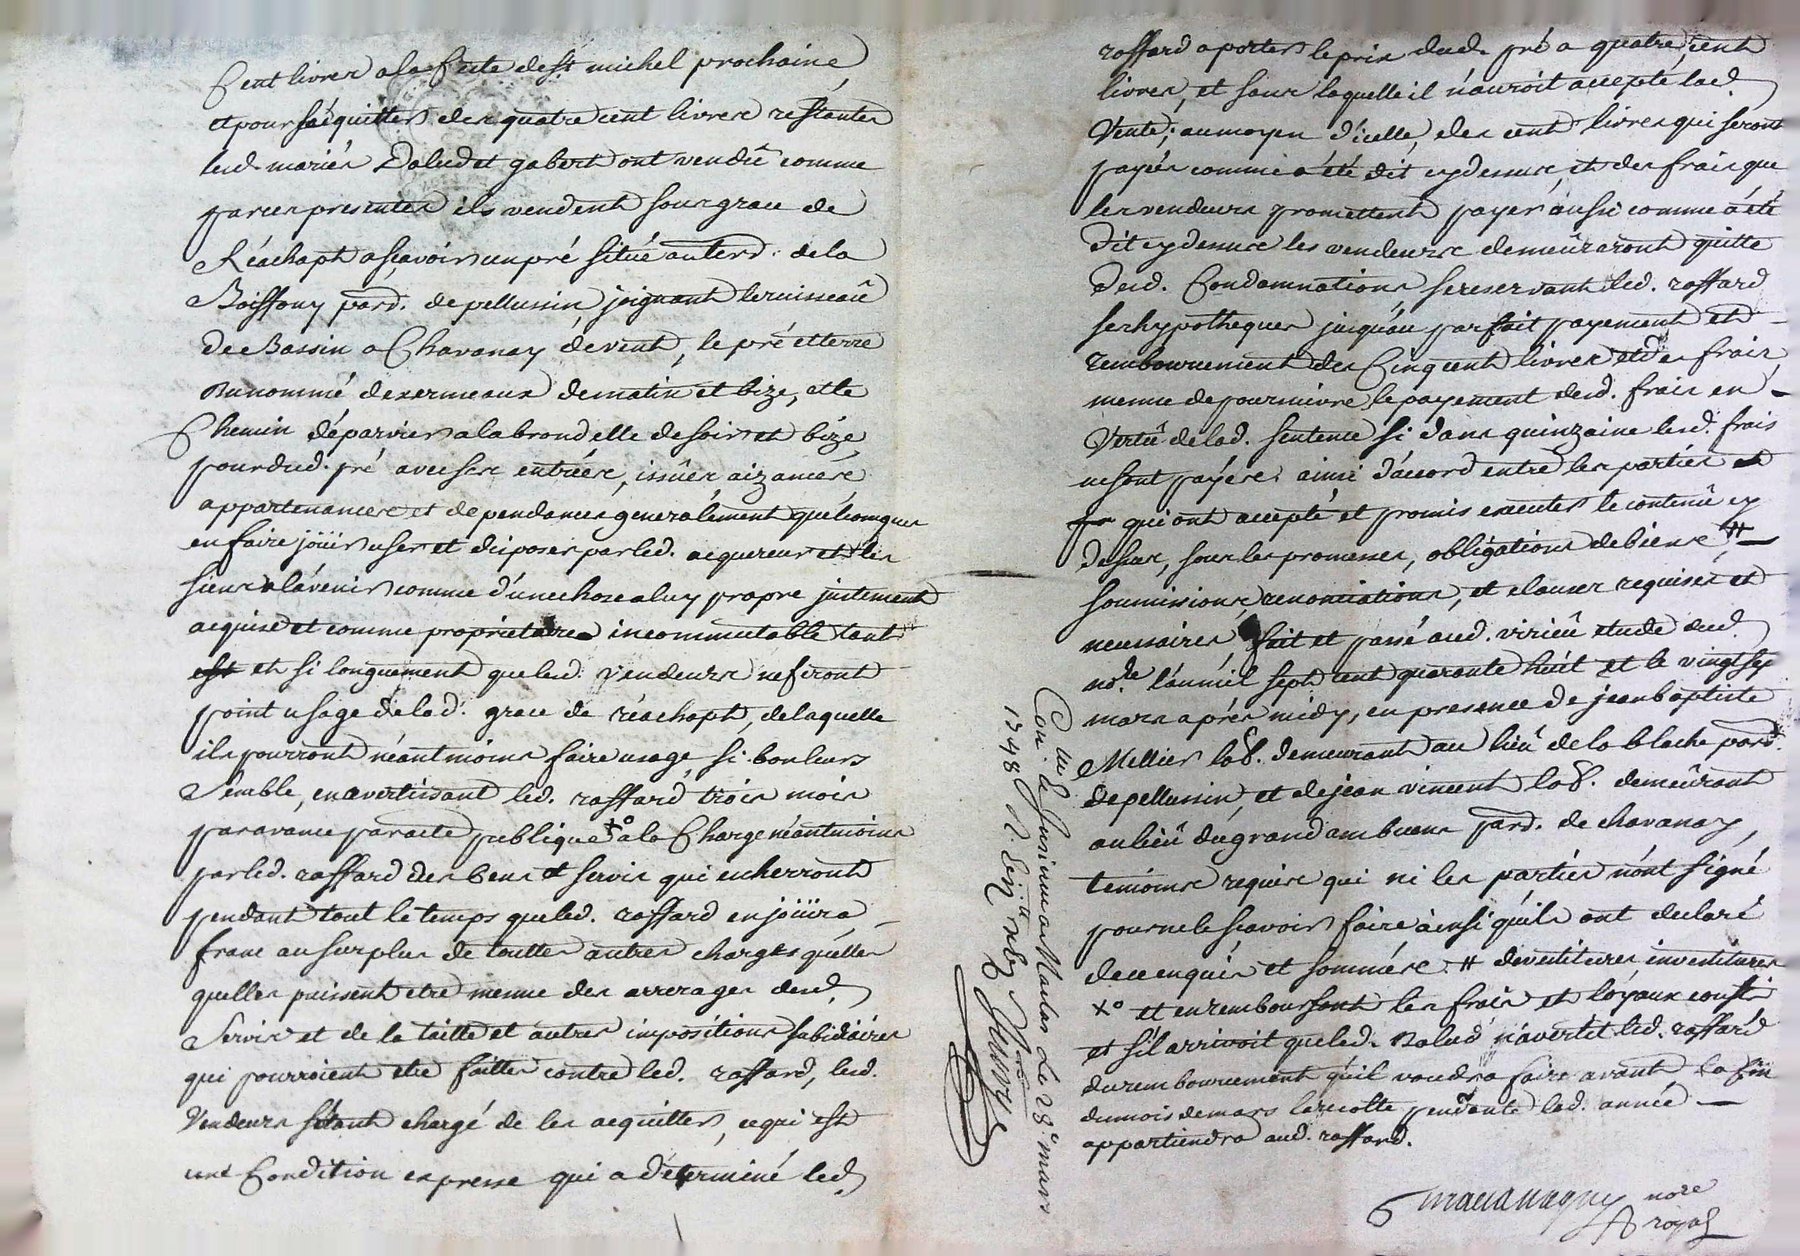 Cent livres a la feste de st michel prochaine
et pour s'acquitter des quatre cent livres restantes
lesd. mariés Dalud et gabert ont vendû comme
par ces presentes ils vendent sous grace de
Réachapt asçavoir un pré situé au terr. de la
Boissony parr. de pellussin, joignant le ruisseaû
de Bassin a Chavanay de vent, le pré et terre
du nommé desermeaux de matin et bize, et le
Chemin de parvier a la brondelle de soir et bize
pour dud. pré avec ses entrées, issûes aizances
appartenances et dependances generalement quelconques
en faire jöüir user et disposer par led. acquereur et les
siens a l'avenir comme d'une chose a luy propre justement
acquise et comme proprietaire incommutable tant
et si longuement que lesd. vendeurs ne feront
point usage de lad. grace de réachapt, de laquelle
ils pourront néantmoins faire usage si bon leurs
Semble, en avertissant led. raffard trois mois
par avance par acte publique x° a la Charge néantmoins
par led. raffard des cens et servis qui encherront
pendant tout le temps que led. raffard en jöüira
franc au surplus de touttes autres charges quelles
quelles puissent etre mesme des arrerages desd.
Servis et de la taille et autres impositions subsidiaires
qui pourroient etre faittes contre led. raffard, lesd.
Vendeurs s'étant chargé de les acquitter, ce qui est
une Condition expresse qui a déterminé led.
raffard a porter le prix dud. pré a quatre cent
livres, et sans laquelle il n'auroit accepté lad.
Vente; au moyen d'icelle, des cent livres qui seront
payés comme a été dit cy dessus, et des frais que
les vendeurs promettent payer aussi comme a été
Dit cy dessus les vendeurs demeûreront quitte
desd. Condamnations se reservant led. raffard
ses hypotheques jusqu'au parfait payement et
remboursement des Cinq cent livres et des frais,
mesme de poursuivre le payement desd. frais en
Vertû de lad. sentence si dans quinzaine lesd. frais
ne sont payés; ainsi d'accord entre les parties
qui ont accepté et promis executer le contenû cy
dessus, sous les promesses, obligations de biens, #
soumissions renonciations, et clauses requises et
necessaires, fait et passé aud. virieû etude dud.
no.re l'an mil sept cent quarante huit et le vingt sep
mars aprés midy, en presence de jean baptiste
Mellier lab. demeurant au lieû de la blache parr.
de pellussin, et de jean vincent lab. demeûrant
au lieû du grand ambuens parr. de chavanay,
temoins requis qui ni les parties n'ont signé
pour ne le sçavoir faire ainsi qu'ils ont declaré
de ce enquis et sommés. # devestitures investitures
x° et en remboursant les frais et loyaux couts
et s'il arrivoit que led. Dalud n'avertit led. raffard
du remboursement qu'il voudra faire avant la fin
du mois de mars la recolte pendante lad. année
appartiendra aud. raffard.
nore
royal
Con.lé a Malas Le 28e mars
1748 R.